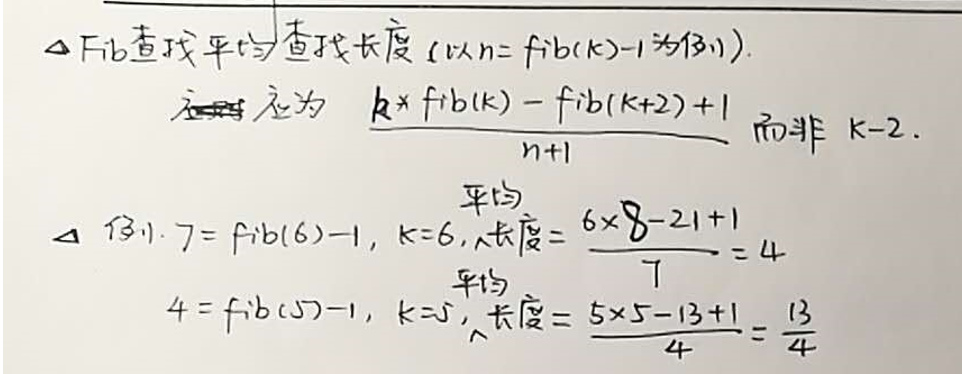 △ Fib查找平均查找长度 (以n=fib(k)-1为例).
应为 k×fib(k)-fib(k+2)+1 / n+1 而非 k-2.
△ 例. 7=fib(6)-1, k=6, 平均长度= 6×8-21+1 / 7 = 4
4=fib(5)-1, k=5, 平均长度= 5×5-13+1 / 4 = 13/4